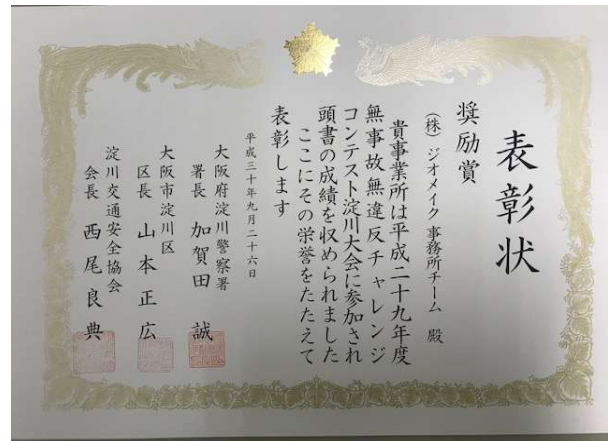 表彰状
奨励賞
(株)ジオメイク事務所チーム 殿
貴事業所は平成二十九年度
無事故無違反チャレンジ
コンテスト淀川大会に参加され
頭書の成績を収められました
ここにその栄誉をたたえて
表彰します
平成三十年九月二十六日
大阪府淀川警察署
署長 加賀田 誠
大阪市淀川区
区長 山本正広
淀川交通安全協会
会長 西尾良典